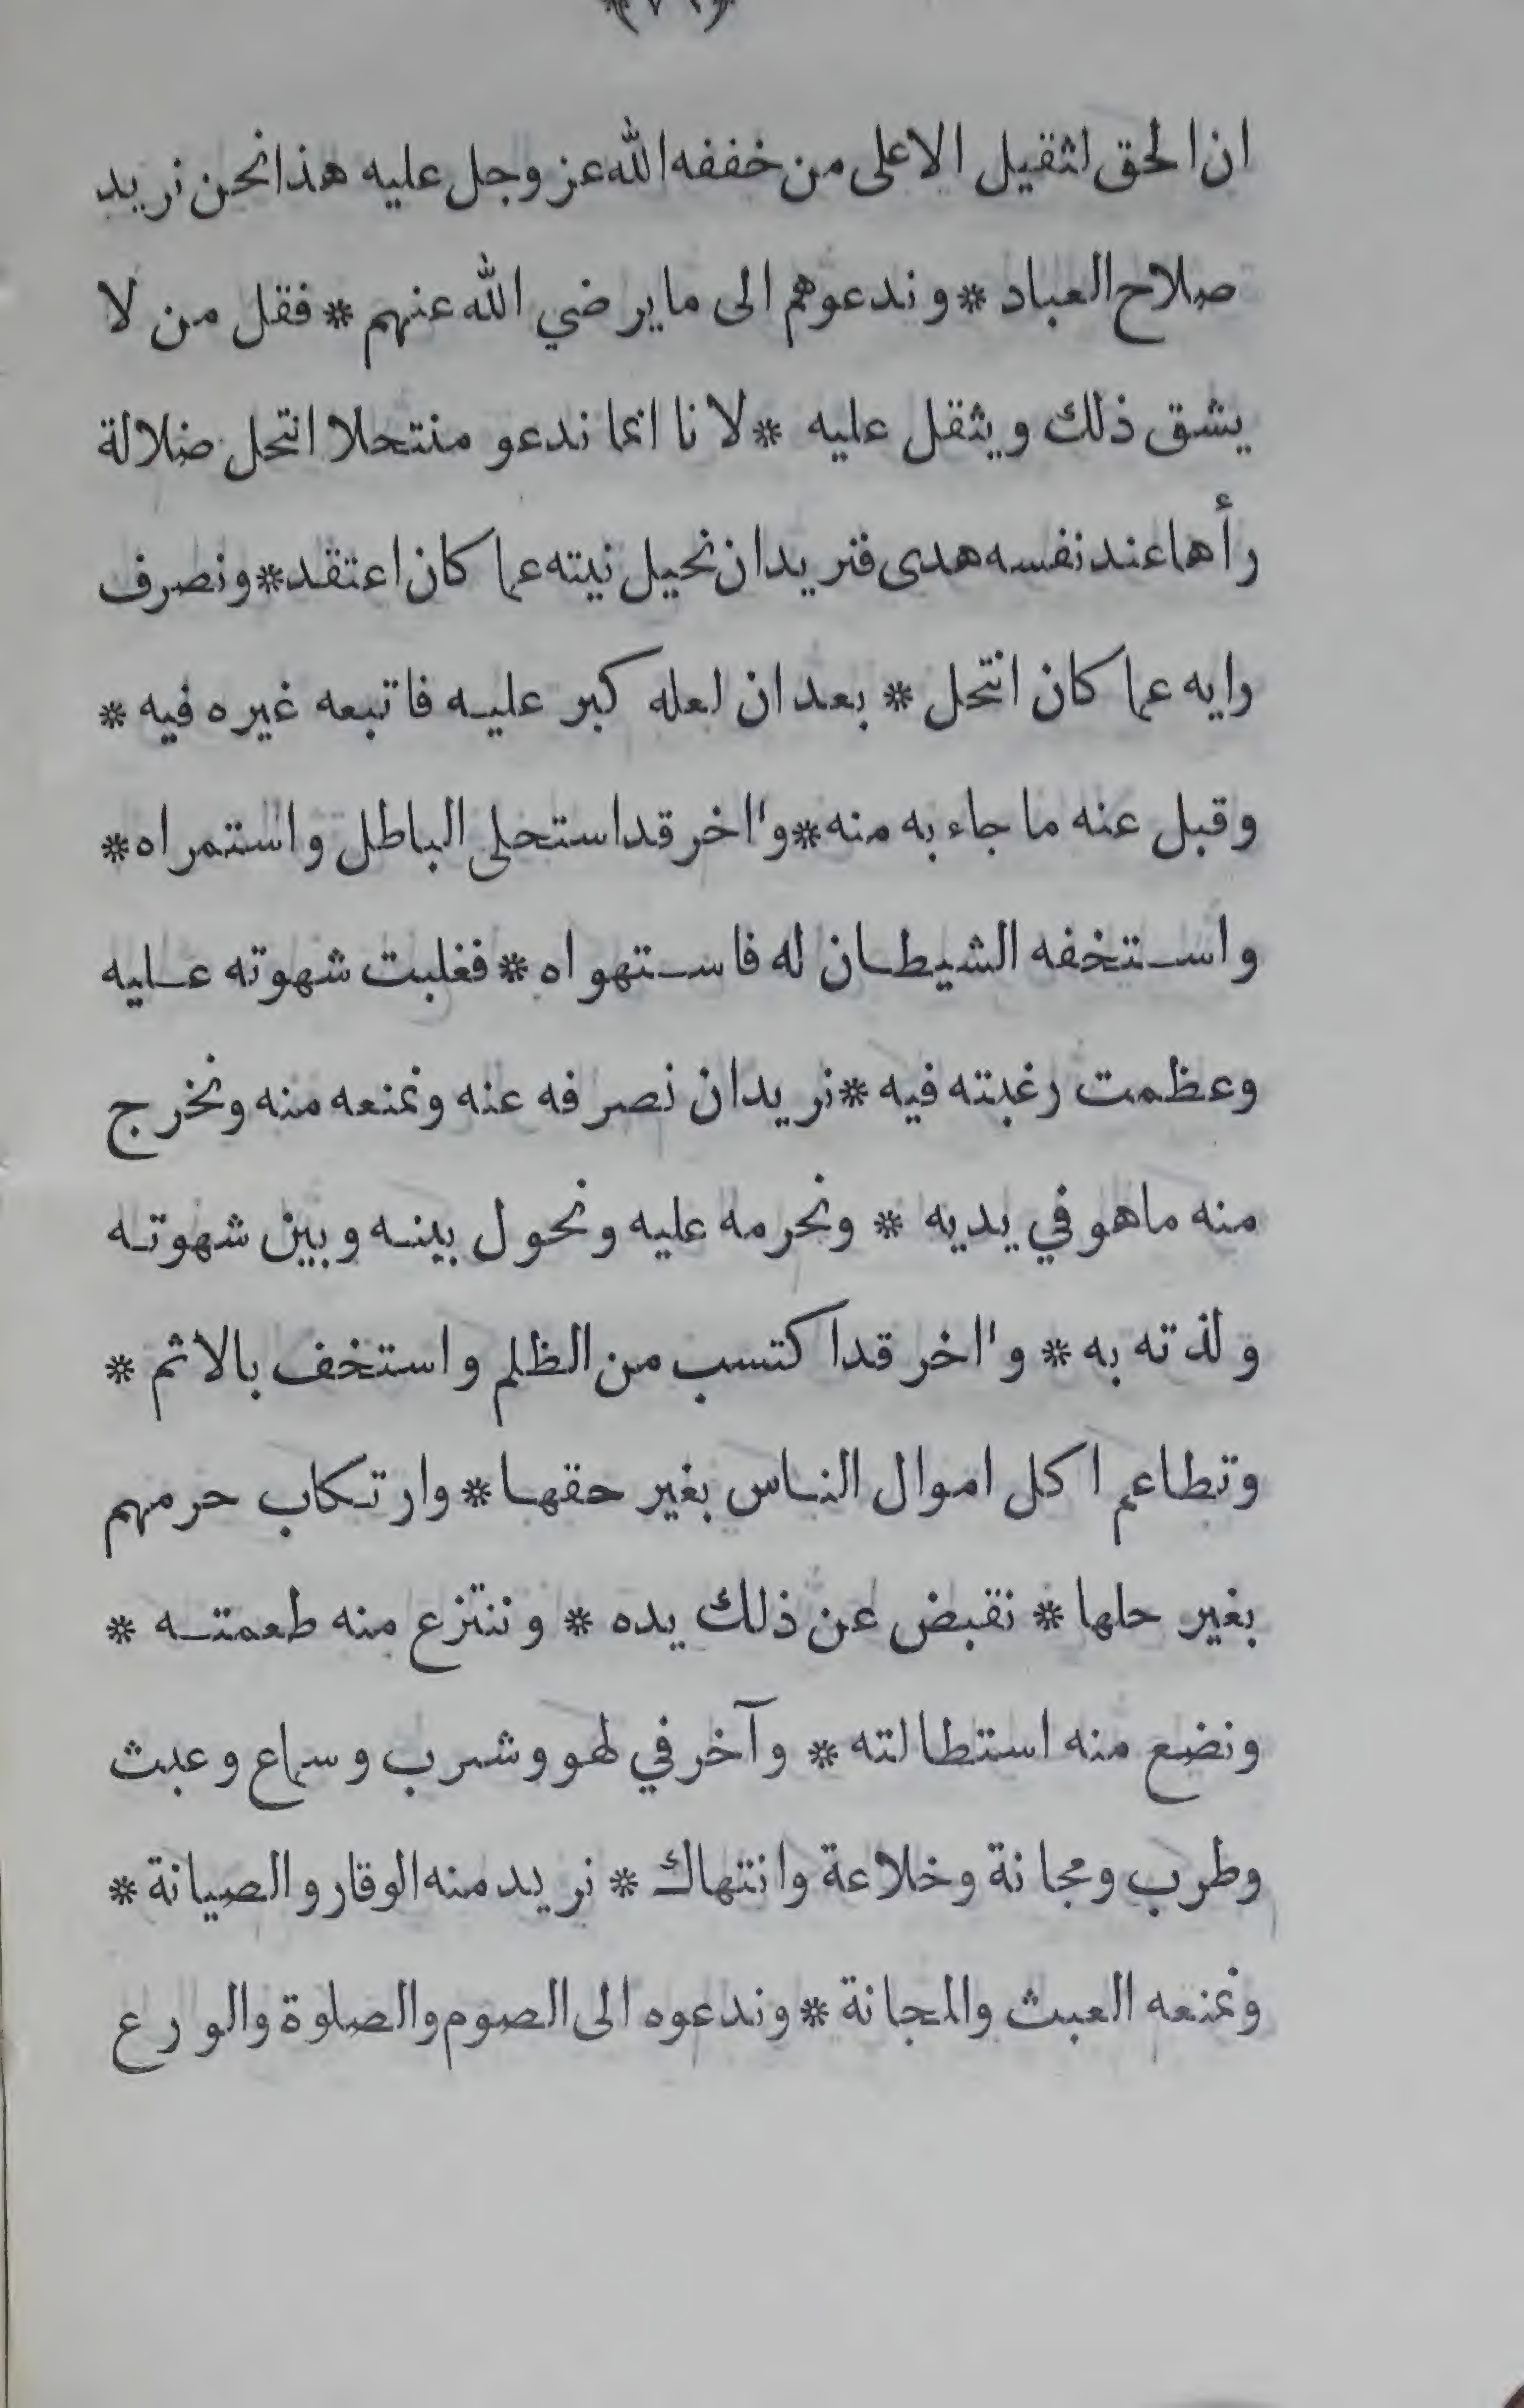 ان الحق لثقيل الا على من خففه الله عز وجل عليه هذا نحن نريد
صلاح العباد * وندعوهم الى ما يرضي الله عنهم * فقل من لا
يشق ذلك ويثقل عليه * لانا انما ندعو منتحلا انتحل ضلالة
رأها عند نفسه هدى فنريد ان نحيل نيته عما كان اعتقد * ونصرف
رايه عما كان انتحل * بعد ان لعله كبر عليه فاتبعه غيره فيه *
وقبل عنه ما جاء به منه * واخر قد استحلى الباطل واستمراه *
واستخفه الشيطان له فاستهواه * فغلبت شهوته عليه
وعظمت رغبته فيه * نريد ان نصرفه عنه ونمنعه منه ونخرج
منه ما هو في يديه * ونحرمه عليه ونحول بينه وبين شهوته
ولذته به * واخر قد اكتسب من الظلم واستخف بالاثم *
وتطاعم اكل اموال الناس بغير حقها * وارتكاب حرمهم
بغير حلها * نقبض عن ذلك يده * وننتزع منه طعمته *
ونضع منه استطالته * وآخر في لهو وشرب وسماع وعبث
وطرب ومجانة وخلاعة وانتهاك * نريد منه الوقار والصيانة *
ونمنعه العبث والمجانة * وندعوه الى الصوم والصلوة والورع